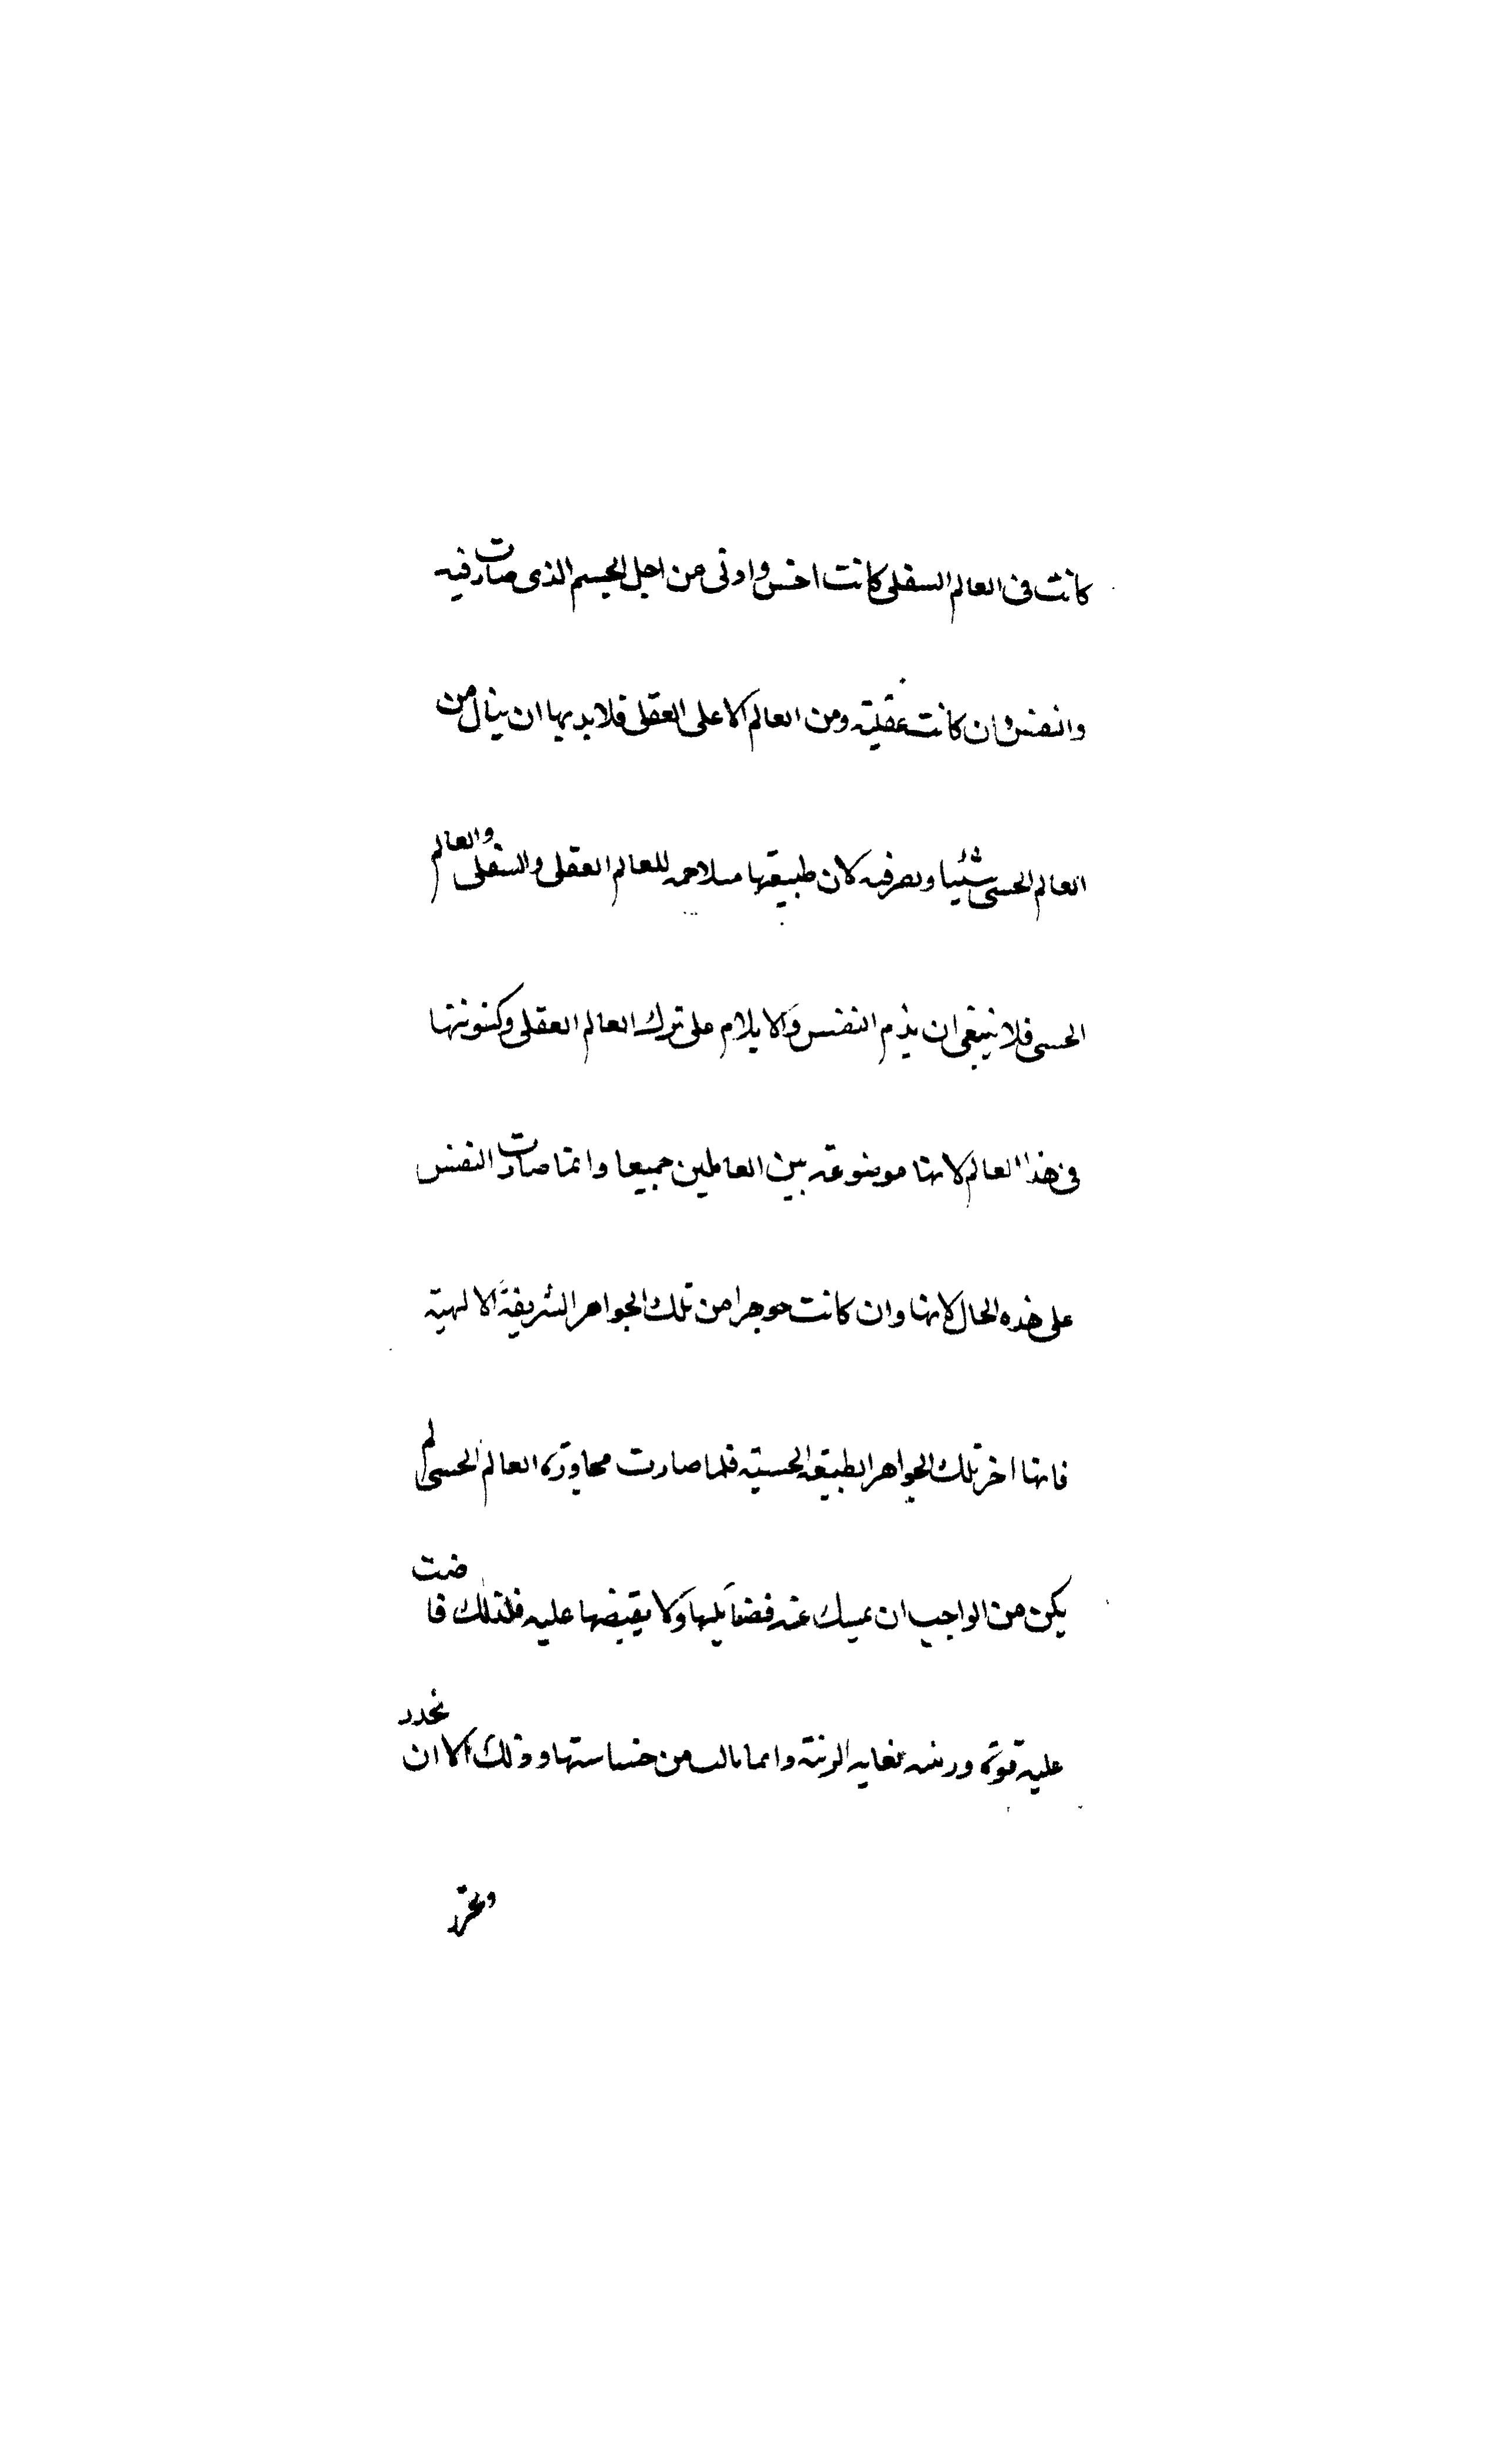 كانت فى العالم السفلى كانت اخس وادنى من اجل الجسم الذى صارت فيه
والنفس وان كانت عقلية ومن العالم الاعلى العقلى فلا بد بها ان ينال من
العالم الحسى شئيا وبصر فيه لان طبيعتها متلاحمه للعالم العقلى والسفلى والعالم
الحسى فلا ينبغى ان يذم النفس ولا يلام على ترك العالم العقلى وكينونتها
فى هذا العالم لانها موضوعة بين العالمين جميعا وانما صارت النفس
على هذه الحال لانها وان كانت جوهرا من تلك الجواهر الشريفة الالهية
فانها اخر تلك الجواهر الطبيعة الحسية فلما صارت مجاورة العالم الحسى لم
يكن من الواجب ان يمسك عنه فضايلها ولا يقيضها عليه فلذلك فاضت
عليه قوة وزينته بغاية الزينة وانما نالت من خساستها وذلك الا ان تحدد
وتحرز